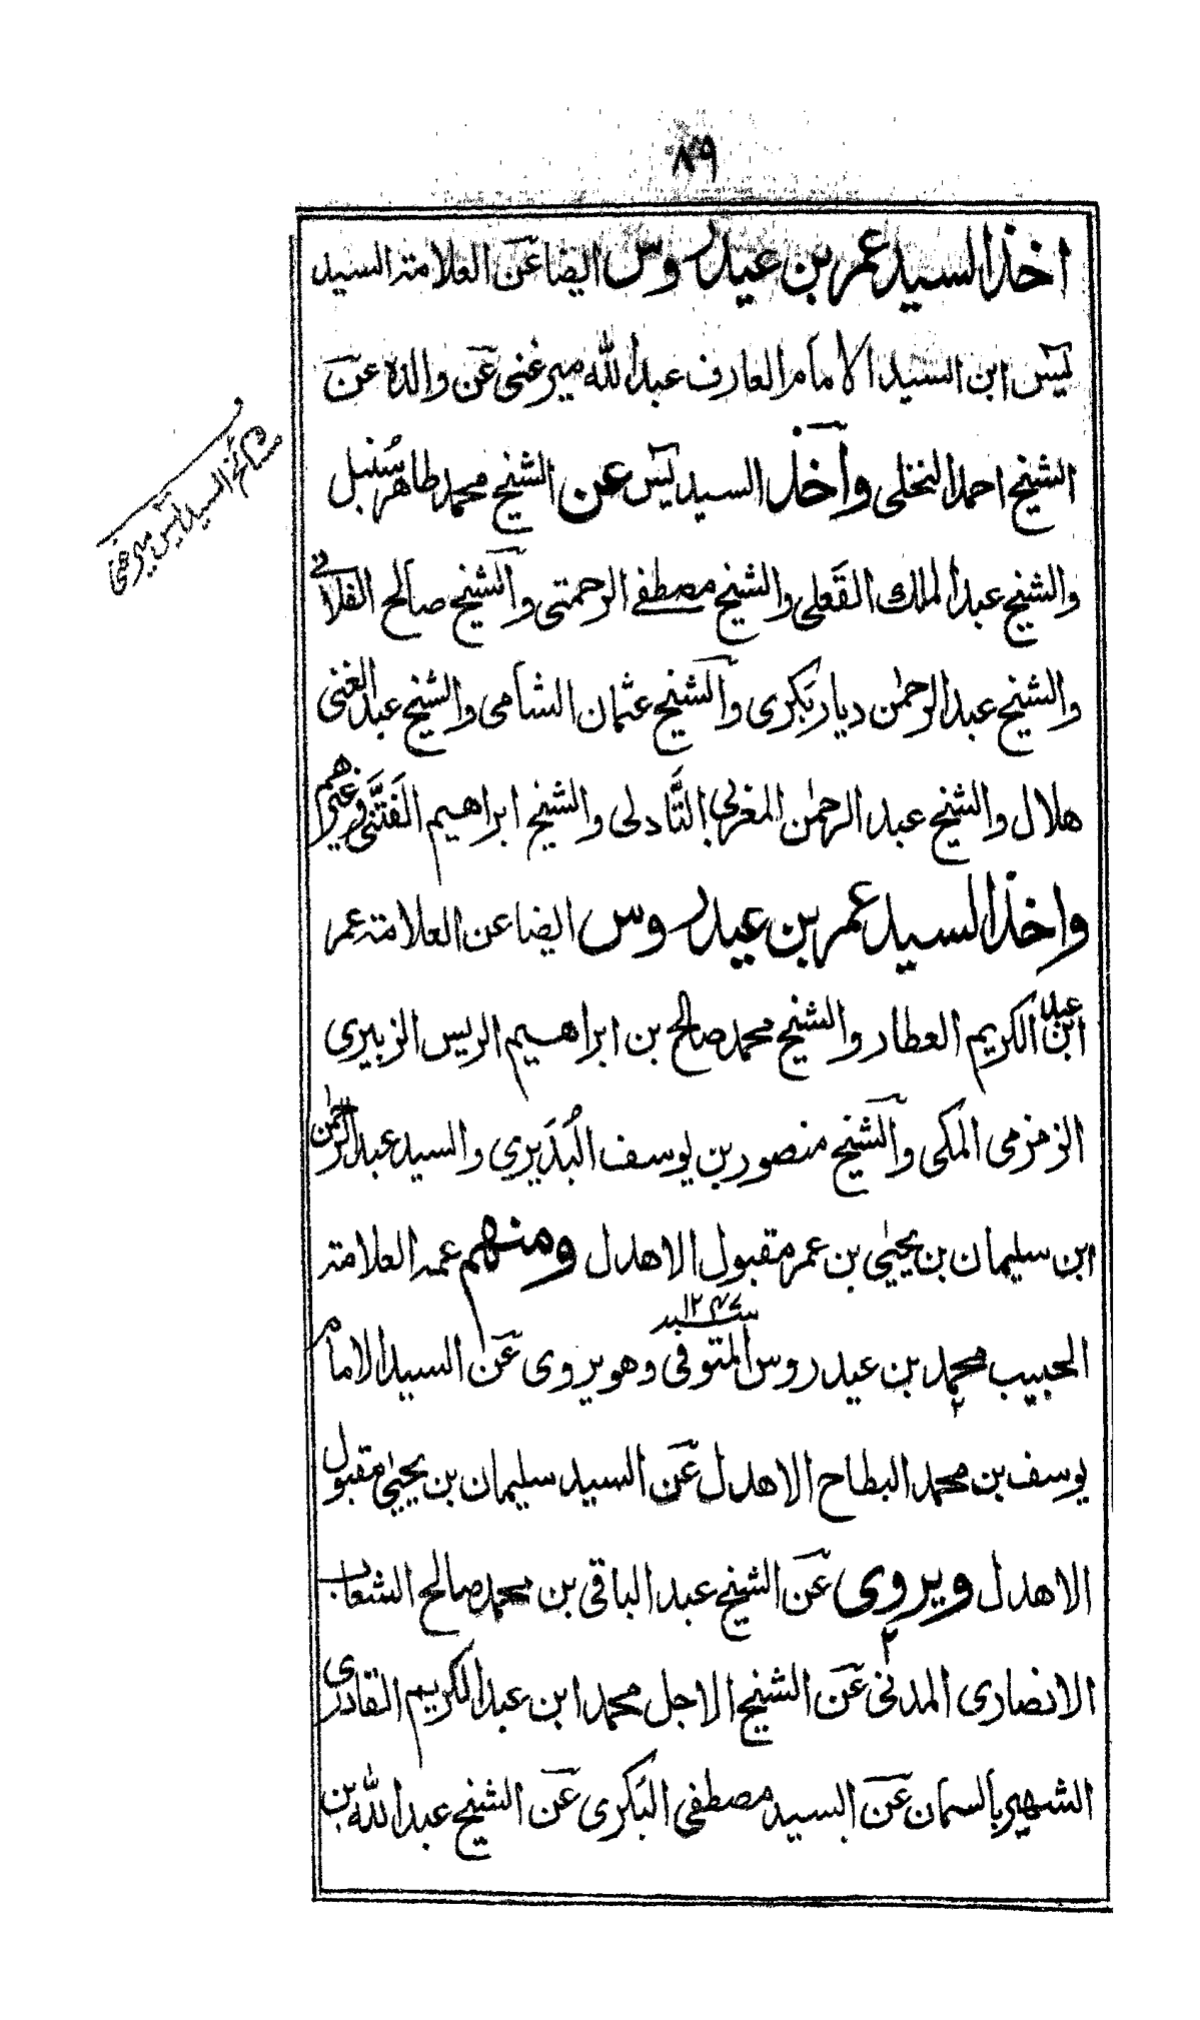 ٨٩
اخذ السيد عمر بن عيدروس ايضا عن العلامة السيد
يٰس ابن السيد الامام العارف عبد الله ميرغنى عن والده عن
الشيخ احمد النخلى واخذ السيد يٰس عن الشيخ محمد طاهر سُنبل
والشيخ عبد الملك القَعلى والشيخ مصطفے الرحمتى والشيخ صالح الفلانى
والشيخ عبد الرحمٰن ديار بَكرى والشيخ عثمان الشامى والشيخ عبد الغنى
هلال والشيخ عبد الرحمٰن المغربى التَّادلى والشيخ ابراهيم الفَتَّنى وغيرهم
واخذ السيد عمر بن عيدروس ايضا عن العلامة عمر
ابن عبد الكريم العطار والشيخ محمد صالح بن ابراهيم الريس الزبيرى
الزمزمى المكى والشيخ منصور بن يوسف البُدَيرى والسيد عبد الرحمٰن
ابن سليمان بن يحيٰى بن عمر مقبول الاهدل ومنهم عمه العلامة
الحبيب محمد بن عيدروس المتوفى سنة ١٢٤٧ وهو يروى عن السيد الامام
يوسف بن محمد البطاح الاهدل عن السيد سليمان بن يحيٰى مقبول
الاهدل ويروى عن الشيخ عبد الباقى بن محمد صالح الشعاب
الانصارى المدنى عن الشيخ الاجل محمد ابن عبد الكريم القادرى
الشهير بالسمان عن السيد مصطفى البَكرى عن الشيخ عبد الله بن
مشائخ السيد يٰس ميرغنى